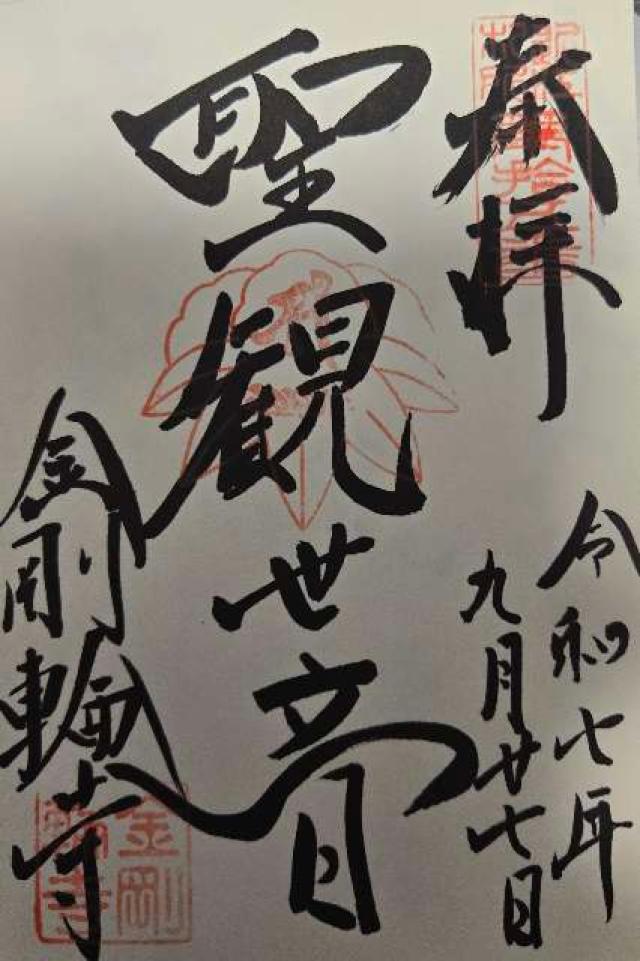 奉拝
令和七年
九月廿七日
聖観世音
金剛輪寺
金剛
輪寺